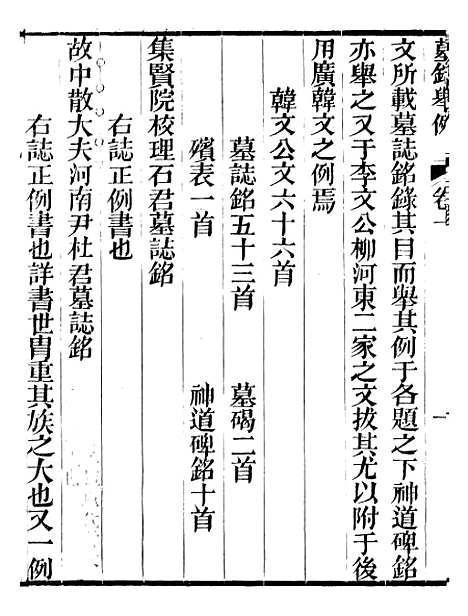 墓銘舉例 卷一 一
文所載墓誌銘錄其目而舉其例于各題之下神道碑銘
亦舉之又于李文公柳河東二家之文拔其尤以附于後
用廣韓文之例焉
韓文公文六十六首
墓誌銘五十三首 墓碣二首
殯表一首 神道碑銘十首
集賢院校理石君墓誌銘
右誌正例書也
故中散大夫河南尹杜君墓誌銘
右誌正例書也詳書世胄重其族之大也又一例